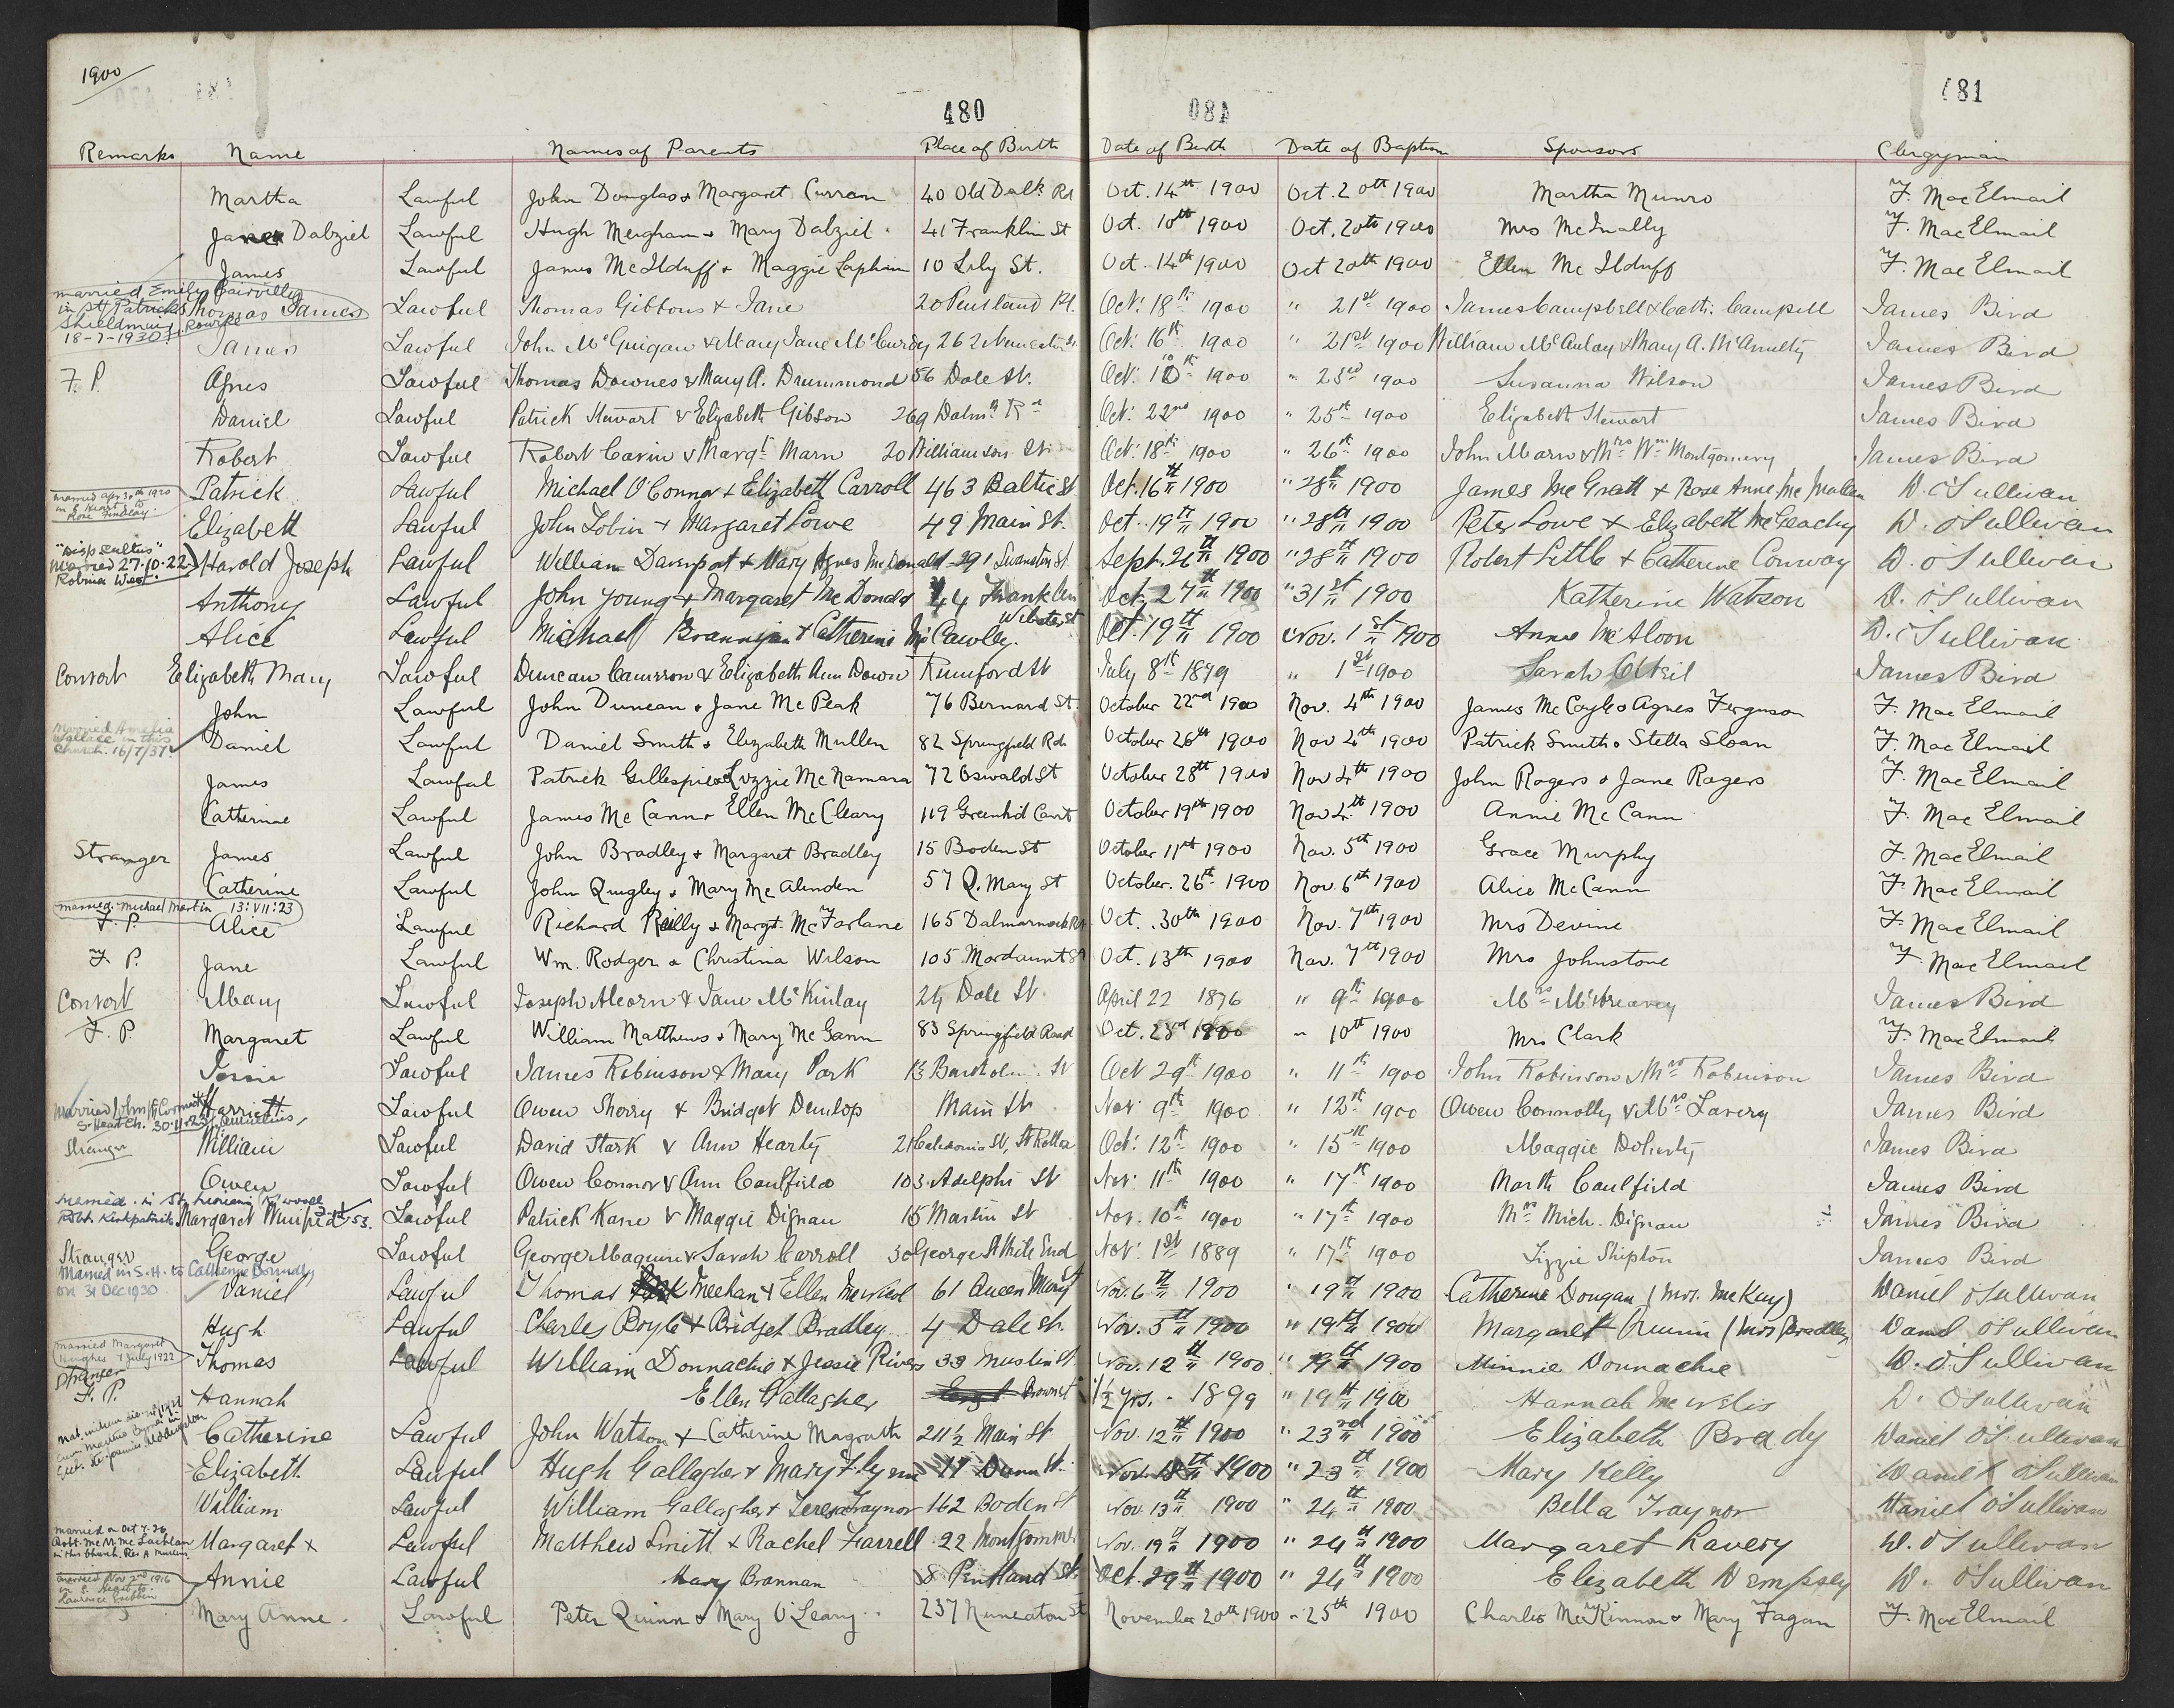 1900
480
481
Remarks Name Names of Parents Place of Birth Date of Birth Date of Baptism Sponsors Clergyman
Martha Lawful John Douglas & Margaret Curran 40 Old Dalk Rd Oct. 14th 1900 Oct. 20th 1900 Martha Munro F. MacElmail
Dalziel Lawful Hugh Meighan & Mary Dalziel 41 Franklin St Oct. 10th 1900 Oct. 20th 1900 Mrs McInally F. MacElmail
James Lawful James McIlduff & Maggie 10 Lily St. Oct. 14th 1900 Oct 20th 1900 Ellen McIlduff F. MacElmail
married Emily
in St Patricks
Shieldmuir
18-7-1930
Thomas James Lawful Thomas Gibbons & Jane Rourke 20 Pentland Pl. Oct: 18th 1900 " 21st 1900 James Campbell & Cath: Campbell James Bird
James Lawful John McGuigan & Mary Jane McCurdy 262 Oct: 16th 1900 " 21st 1900 William McAulay & Mary A. McAnulty James Bird
F. P. Agnes Lawful Thomas Downes & Mary A. Drummond 56 Dale St. Oct: 1900 " 23rd 1900 Susanna Wilson James Bird
Daniel Lawful Patrick Stewart & Elizabeth Gibson 269 Dalmk Rd Oct: 22nd 1900 " 25th 1900 Elizabeth Stewart James Bird
Robert Lawful Robert Cavin & Margt Marn 20 Williamson St Oct: 18th 1900 " 26th 1900 John Marn & Mrs Wm Montgomery James Bird
married Apr 30th 1920
in S. Heart to
Rose Findlay
Patrick Lawful Michael O'Connor & Elizabeth Carroll 463 Baltic St Oct. 16th 1900 " 28th 1900 James McGratt & Rose Anne McMullen D. O'Sullivan
Elizabeth Lawful John Tobin & Margaret Lowe 49 Main St. Oct. 19th 1900 " 28th 1900 Peter Lowe & Elizabeth McGeachy D. O'Sullivan
"Disp cultus"
Married 27.10.22
Robina West.
Harold Joseph Lawful William Davenport & Mary Agnes McDonald 291 Swanston St Sept. 26th 1900 " 28th 1900 Robert Little & Catherine Conway D. O'Sullivan
Anthony Lawful John Young & Margaret McDonald 44 Franklin Oct. 27th 1900 " 31st 1900 Katherine Watson D. O'Sullivan
Alice Lawful Michael Brannigan & Catherine McCawley. Webster St Oct. 19th 1900 Nov. 1st 1900 Annie McAloon D. O'Sullivan
Convert Elizabeth Mary Lawful Duncan Cameron & Elizabeth Ann Down Rumford St July 8th 1879 " 1st 1900 Sarah O'Neil James Bird
John Lawful John Duncan & Jane McPeak 76 Bernard St October 22nd 1900 Nov. 4th 1900 James McCoyle & Agnes Ferguson F. MacElmail
Married Amelia
Wallace in this
Church. 16/7/37.
Daniel Lawful Daniel Smith & Elizabeth Mullen 82 Springfield Rd October 26th 1900 Nov 4th 1900 Patrick Smith & Stella Sloan F. MacElmail
James Lawful Patrick Gillespie & Lizzie McNamara 72 Oswald St October 28th 1900 Nov 4th 1900 John Rogers & Jane Rogers F. MacElmail
Catherine Lawful James McCann & Ellen McCleary 119 Greenhd Court October 19th 1900 Nov 4th 1900 Annie McCann F. MacElmail
Stranger James Lawful John Bradley & Margaret Bradley 15 Boden St October 11th 1900 Nov. 5th 1900 Grace Murphy F. MacElmail
Catherine Lawful John Quigley & Mary McAlinden 57 Q. Mary St October. 26th 1900 Nov. 6th 1900 Alice McCann F. MacElmail
married Michael Martin 13:VII:23
F. P. Alice Lawful Richard Reilly & Margt. McFarlane 165 Dalmarnock Rd Oct. 30th 1900 Nov. 7th 1900 Mrs Devine F. MacElmail
F. P. Jane Lawful Wm. Rodger & Christina Wilson 105 Mordaunt St Oct. 13th 1900 Nov. 7th 1900 Mrs Johnstone F. MacElmail
Convert Mary Lawful Joseph Alcorn & Jane McKinlay 24 Dale St. April 22 1876 " 9th 1900 Mrs James Bird
F. P. Margaret Lawful William Matthews & Mary McGann 83 Springfield Road Oct. 23rd 1900 " 10th 1900 Mrs Clark F. MacElmail
Jessie Lawful James Robinson & Mary Park 13 Bartholm: St Oct 29th 1900 " 11th 1900 John Robinson & Mrs Robinson James Bird
Married John McCormick
S. Heart Ch. 30.11.23
Harriett Lawful Owen Sherry & Bridget Dunlop Main St Nov: 9th 1900 " 12th 1900 Owen Connolly & Mrs Lavery James Bird
Stranger William Lawful David Stark & Ann Hearty 21 Caledonia St, St Rollox Oct: 12th 1900 " 15th 1900 Maggie Doherty James Bird
Owen Lawful Owen Connor & Ann Caulfield 103 Adelphi St Nov: 11th 1900 " 17th 1900 Marth Caulfield James Bird
Married in St.
Robt. Kirkpatrick
Margaret Winifred Lawful Patrick Kane & Maggie Dignan 15 Martin St Nov. 10th 1900 " 17th 1900 Mrs Mich. Dignan James Bird
Stranger George Lawful George Maguire & Sarah Carroll 30 George St Mile End Nov: 1st 1889 " 17th 1900 Lizzie Shipton James Bird
Married in S. H. to Catherine Donnelly
on 31 Dec 1930
Daniel Lawful Thomas Meehan & Ellen 61 Queen Mary St Nov. 6th 1900 " 19th 1900 Catherine Dougan (Mrs. McKay) Daniel O'Sullivan
Hugh Lawful Charles Boyle & Bridget Bradley 4 Dale St. Nov. 5th 1900 " 19th 1900 Margaret Quinn (Mrs Bradley) Daniel O'Sullivan
married Margaret
Hughes 7 July 1922
Thomas Lawful William Donnachie & Jessie Rivers 33 Muslin St Nov. 12th 1900 " 19th 1900 Minnie Donnachie D. O'Sullivan
Stranger
F. P. Hannah Ellen Gallagher Brown St 1½ yrs. 1899 " 19th 1900 Hannah D. O'Sullivan
Catherine Lawful John Watson & Catherine Magrath 211½ Main St Nov. 12th 1900 " 23rd 1900 Elizabeth Brady Daniel O'Sullivan
Elizabeth Lawful Hugh Gallagher & Mary Flynn 11 Dunn St. Nov. 1900 " 23rd 1900 Mary Kelly Daniel O'Sullivan
William Lawful William Gallagher & Teresa Traynor 162 Boden St Nov. 13th 1900 " 24th 1900 Bella Traynor Daniel O'Sullivan
married on Oct 7. 26
Robt. McN. McLachlan
in this Church.
Margaret x Lawful Matthew Smith & Rachel Farrell 22 Nov. 19th 1900 " 24th 1900 Margaret Lavery D. O'Sullivan
married Nov 2nd 1916
in S. Heart to
Laurence
Annie Lawful Mary Brannan 8 Pentland St. Oct. 29th 1900 " 24th 1900 Elizabeth Dempsey D. O'Sullivan
Mary Anne Lawful Peter Quinn & Mary O'Leary 237 Nuneaton St November 20th 1900 " 25th 1900 Charles McKinnon & Mary Fagan F. MacElmail